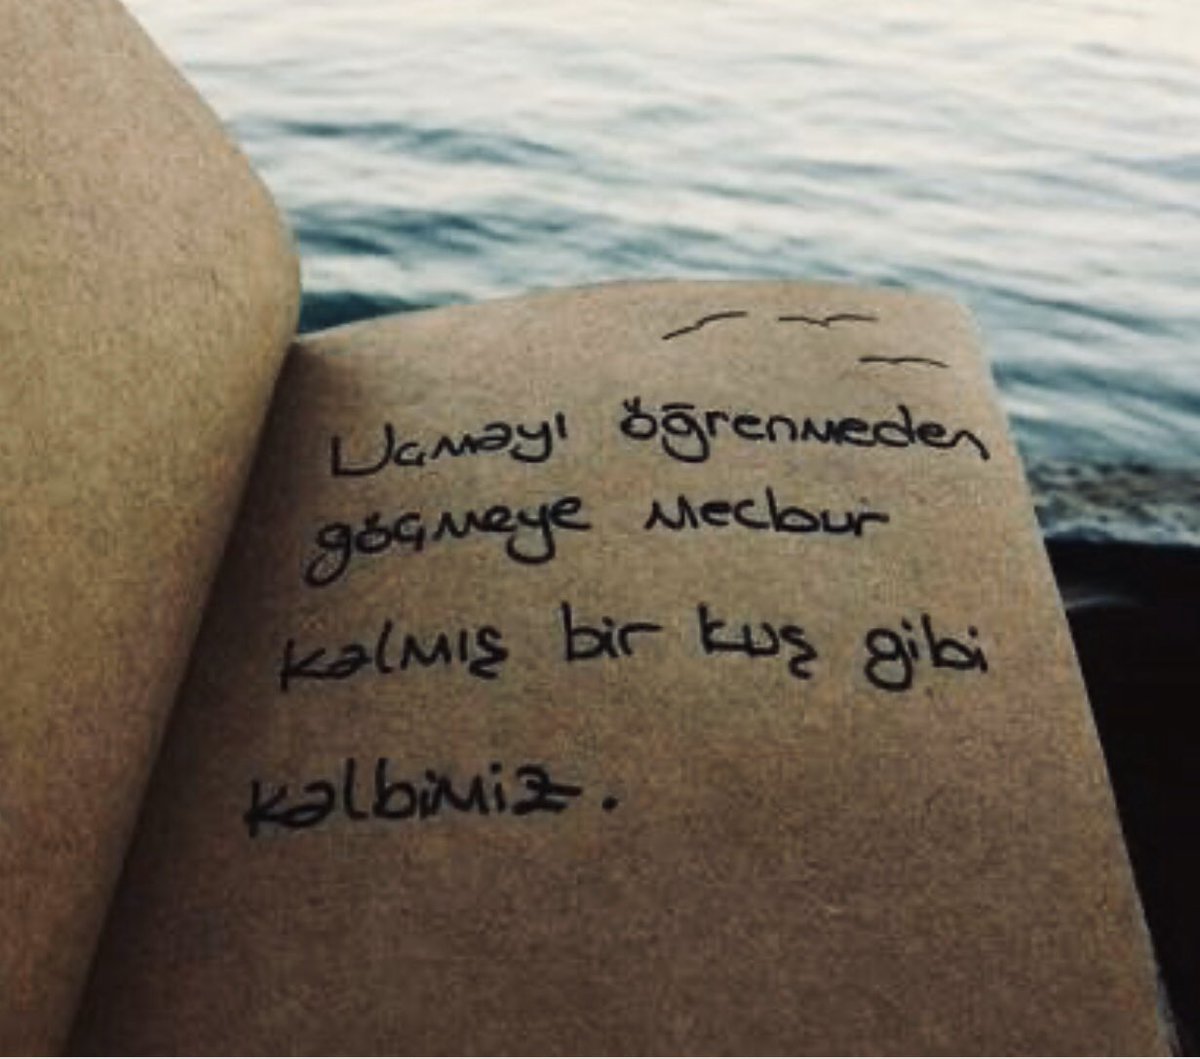 Uçmayı öğrenmeden
göçmeye mecbur
kalmış bir kuş gibi
kalbimiz.